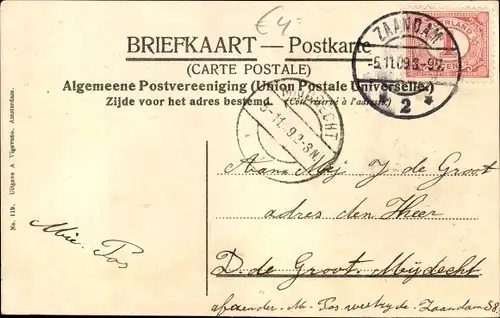 €4
BRIEFKAART — Postkarte
(CARTE POSTALE)
Algemeene Postvereeniging (Union Postale Universelle.)
Zijde voor het adres bestemd. (Côté réservé à l'adresse.)
ZAANDAM
-5.11.09 8-9V.
2
5-11.9.2-8N
No. 119. Uitgave A Vigevano, Amsterdam.
Mie. Pos
Aan Mej J de Groot
adres den Heer
D. de Groot. Mijdrecht
afzender. M. Pos westzijde. Zaandam 58